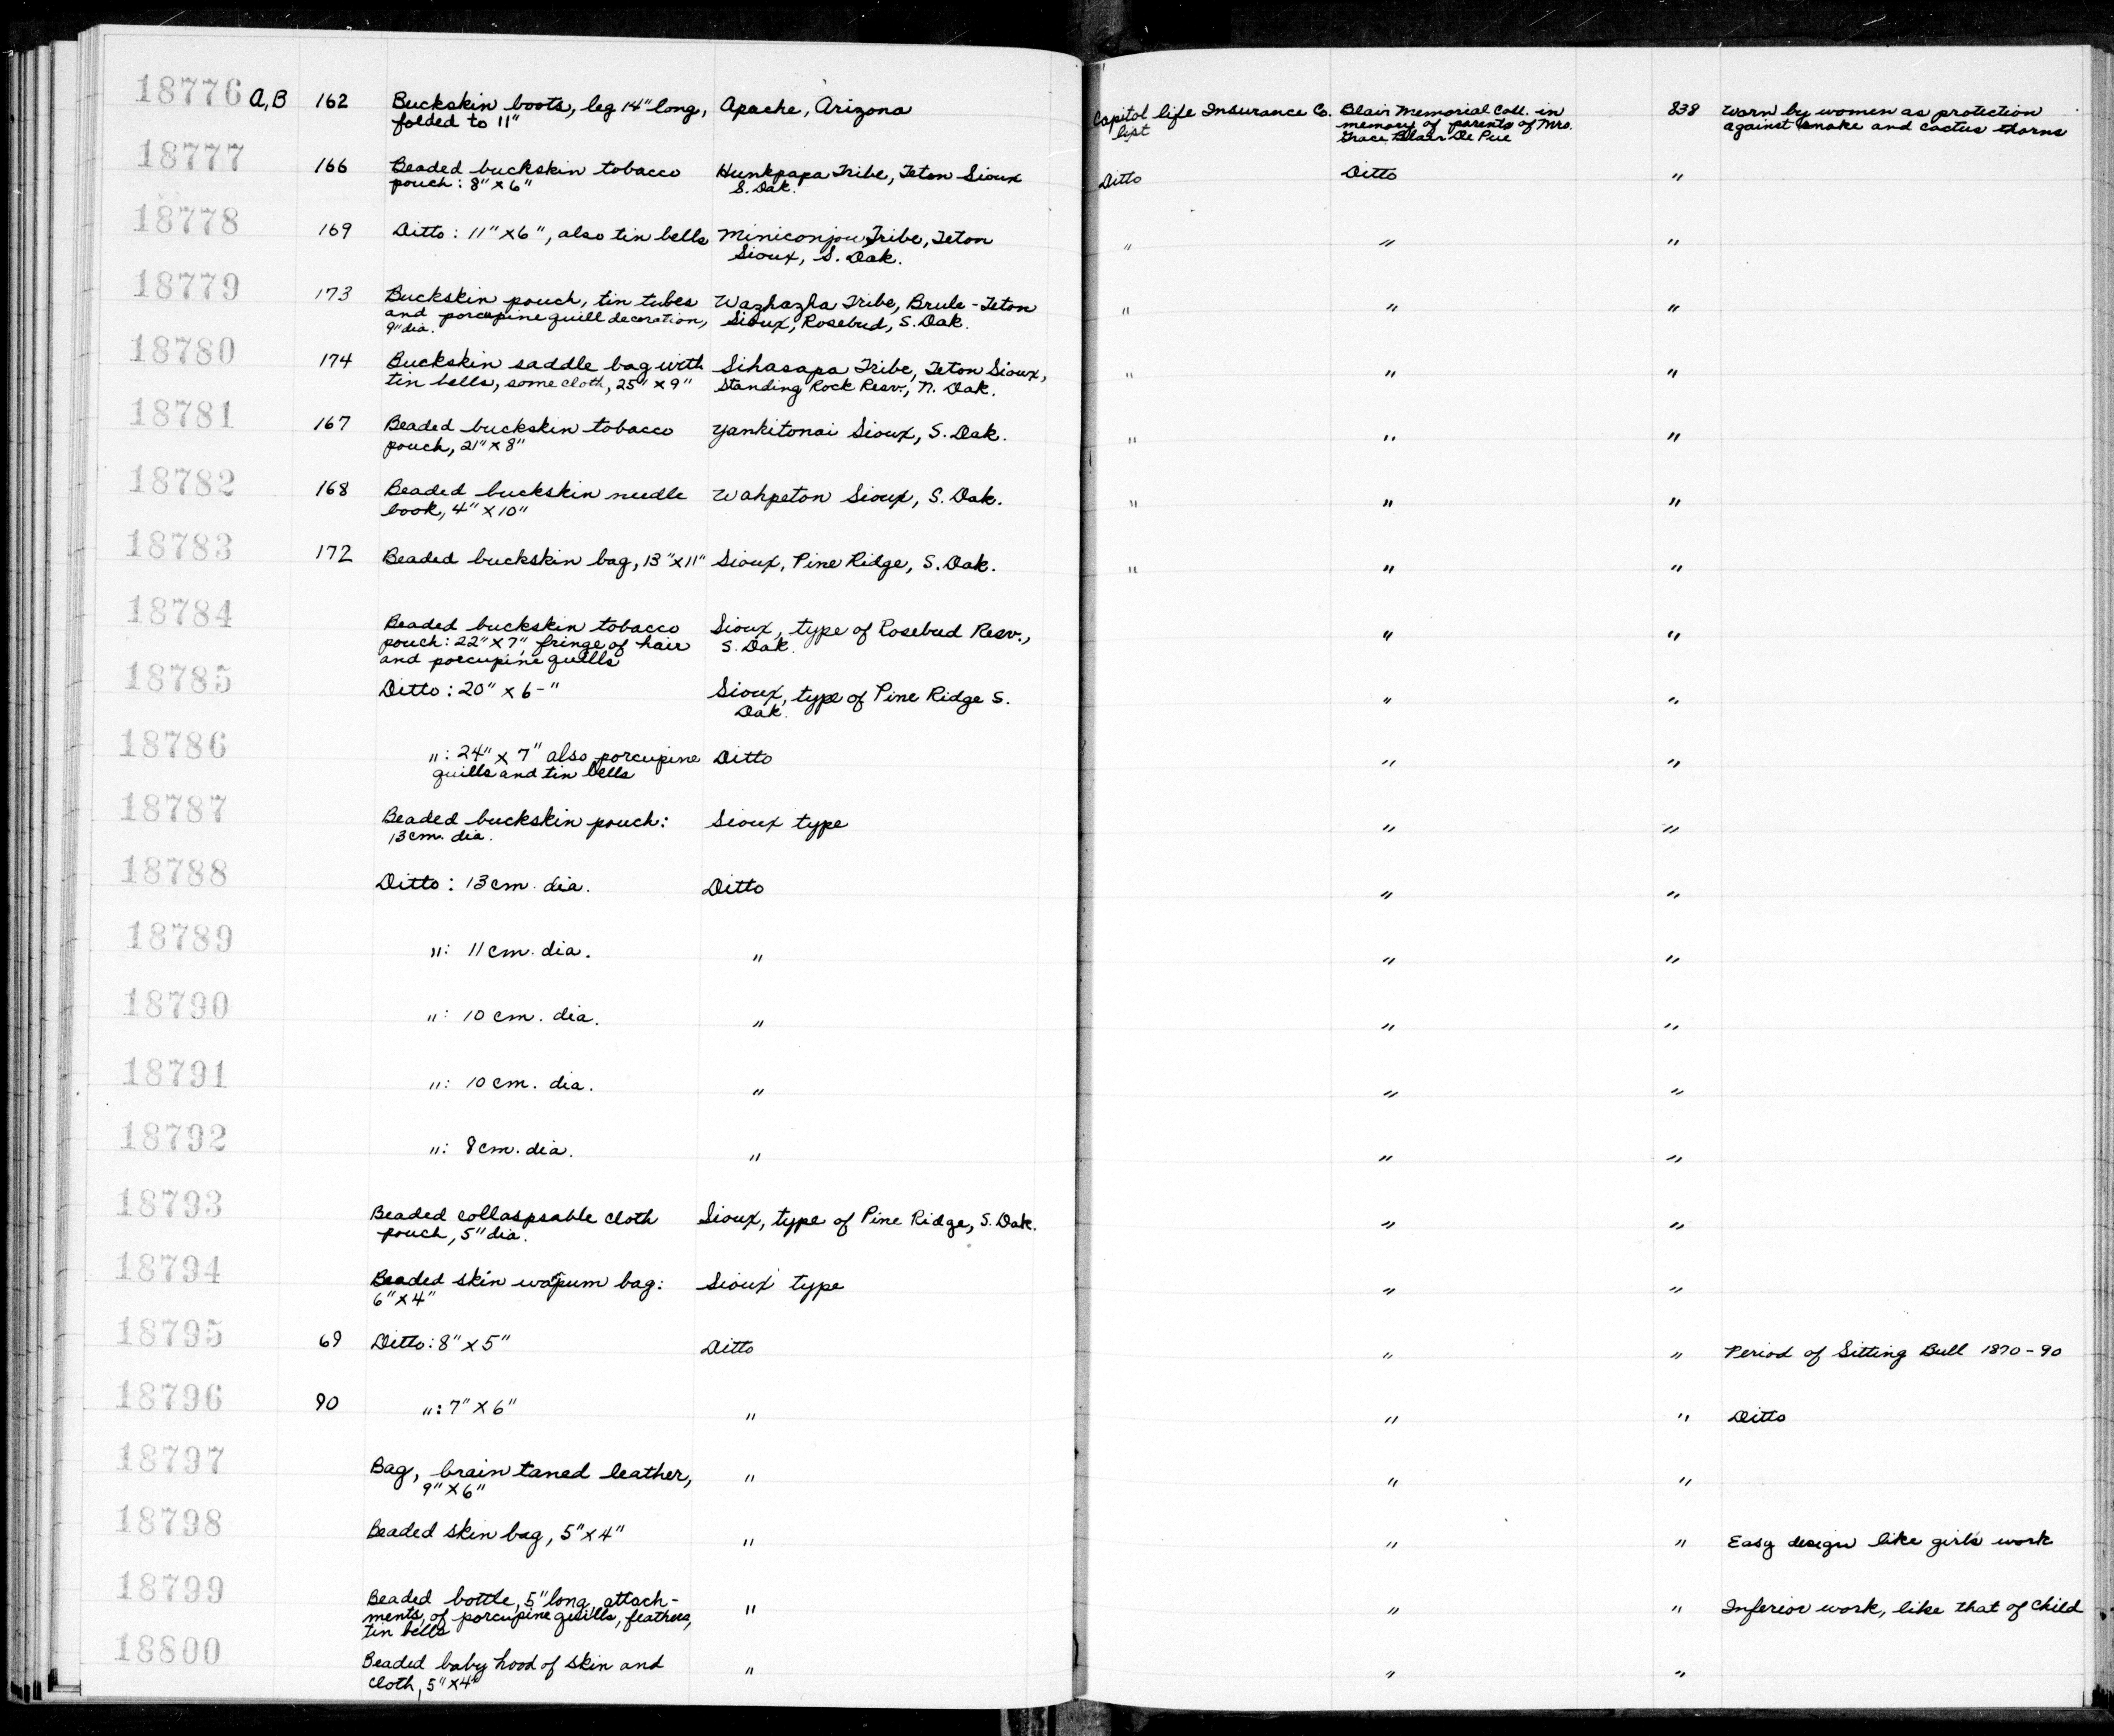 18776 A,B 162 Buckskin boots, leg 14" long, Apache, Arizona Capitol life Insurance Co. Blair Memorial Coll. in 838 Worn by women as protection
folded to 11" list memory of parents of Mrs. against snake and cactus thorns
Grace Blair De Pue
18777 166 Beaded buckskin tobacco Hunkpapa Tribe, Teton Sioux Ditto Ditto "
pouch: 8" x 6" S. Dak.
18778 169 Ditto: 11" x 6", also tin bells Miniconjou Tribe, Teton " " "
Sioux, S. Dak.
18779 173 Buckskin pouch, tin tubes Wazhazha Tribe, Brule-Teton " " "
and porcupine quill decoration, Sioux, Rosebud, S. Dak.
9" dia.
18780 174 Buckskin saddle bag with Sihasapa Tribe, Teton Sioux, " " "
tin bells, some cloth, 25" x 9" Standing Rock Resv., N. Dak.
18781 167 Beaded buckskin tobacco Yankitonai Sioux, S. Dak. " " "
pouch, 21" x 8"
18782 168 Beaded buckskin needle Wahpeton Sioux, S. Dak. " " "
book, 4" x 10"
18783 172 Beaded buckskin bag, 13" x 11" Sioux, Pine Ridge, S. Dak. " " "
18784 Beaded buckskin tobacco Sioux, type of Rosebud Resv., " "
pouch: 22" x 7", fringe of hair S. Dak.
and porcupine quills
18785 Ditto: 20" x 6-" Sioux, type of Pine Ridge S. " "
Dak.
18786 ": 24" x 7" also porcupine Ditto " "
quills and tin bells
18787 Beaded buckskin pouch: Sioux type " "
13 cm. dia.
18788 Ditto: 13 cm. dia. Ditto " "
18789 ": 11 cm. dia. " " "
18790 ": 10 cm. dia. " " "
18791 ": 10 cm. dia. " " "
18792 ": 8 cm. dia. " " "
18793 Beaded collaspsable cloth Sioux, type of Pine Ridge, S. Dak. " "
pouch, 5" dia.
18794 Beaded skin wapum bag: Sioux type " "
6" x 4"
18795 69 Ditto: 8" x 5" Ditto " " Period of Sitting Bull 1870-90
18796 90 ": 7" x 6" " " " Ditto
18797 Bag, brain taned leather, " " "
9" x 6"
18798 Beaded skin bag, 5" x 4" " " " Easy design like girl's work
18799 Beaded bottle, 5" long, attach- " " " Inferior work, like that of child
ments, of porcupine quills, feathers,
tin bells
18800 Beaded baby hood of skin and " " "
cloth, 5" x 4"